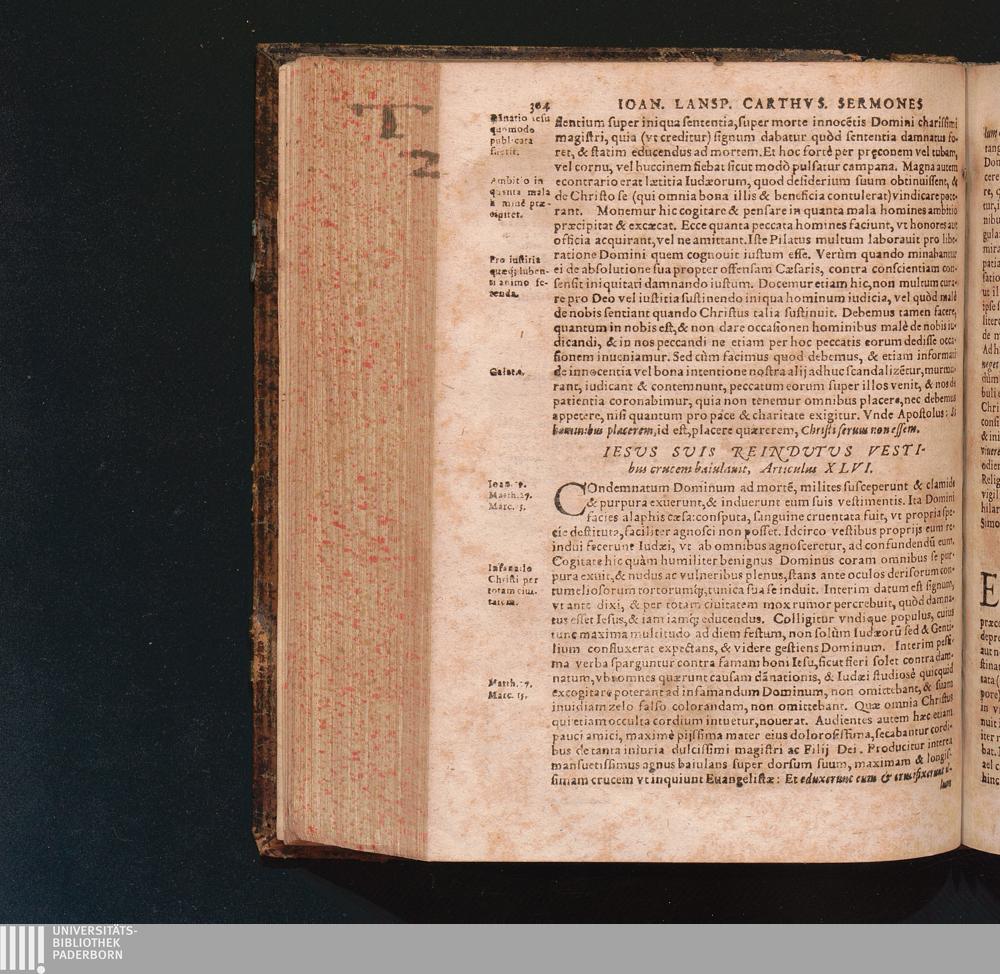 T
2
304
IOAN. LANSP. CARTHVS. SERMONES
quomodo
publicata
fuerit.
flentium super iniqua sententia, super morte innocētis Domini charissimi
magistri, quia (vt creditur) signum dabatur quòd sententia damnatus fo-
ret, & statim educendus ad mortem. Et hoc fortè per præconem vel tubam,
vel cornu, vel huccinem fiebat sicut modò pulsatur campana. Magna autem
Ambitio in
quanta mala
econtrario erat lætitia Iudæorum, quod desiderium suum obtinuissent, &
de Christo se (qui omnia bona illis & beneficia contulerat) vindicare pote-
rant. Monemur hic cogitare & pensare in quanta mala homines ambitio
præcipitat & excæcat. Ecce quanta peccata homines faciunt, vt honores aut
officia acquirant, vel ne amittant. Iste Pilatus multum laborauit pro libe-
Pro iustitia
ratione Domini quem cognouit iustum esse. Verùm quando minabantur
ei de absolutione sua propter offensam Cæsaris, contra conscientiam con-
sensit iniquitati damnando iustum. Docemur etiam hic, non multum cura-
re pro Deo vel iustitia sustinendo iniqua hominum iudicia, vel quòd malè
de nobis sentiant quando Christus talia sustinuit. Debemus tamen facere,
quantum in nobis est, & non dare occasionem hominibus malè de nobis iu-
dicandi, & in nos peccandi ne etiam per hoc peccatis eorum dedisse occa-
sionem inueniamur. Sed cùm facimus quod debemus, & etiam informati
Galat.
de innocentia vel bona intentione nostra alij adhuc scandalizētur, murmu-
rant, iudicant & contemnunt, peccatum eorum super illos venit, & nos de
patientia coronabimur, quia non tenemur omnibus placere, nec debemus
appetere, nisi quantum pro pace & charitate exigitur. Vnde Apostolus: Si
hominibus placerem, id est, placere quærerem, Christi seruus non essem.
IESVS SVIS REINDVTVS VESTI-
bus crucem baiulauit, Articulus XLVI.
Ioan. 19.
Matth. 27.
Marc. 15.
COndemnatum Dominum ad mortē, milites susceperunt & clamide
& purpura exuerunt, & induerunt eum suis vestimentis. Ita Domini
facies alaphis cæsa: consputa, sanguine cruentata fuit, vt propria spe-
cie destituta, faciliter agnosci non posset. Idcirco vestibus proprijs eum re-
indui fecerunt Iudæi, vt ab omnibus agnosceretur, ad confundendū eum.
Cogitate hic quàm humiliter benignus Dominus coram omnibus se pur-
Christi per
totam ciui-
tatem.
pura exuit, & nudus ac vulneribus plenus, stans ante oculos derisorum con-
tumeliosorum tortorumq́;, tunica sua se induit. Interim datum est signum,
vt ante dixi, & per totam ciuitatem mox rumor percrebuit, quòd damna-
tus esset Iesus, & iam iamq́; educendus. Colligitur vndique populus, cuius
tunc maxima multitudo ad diem festum, non solùm Iudæorū sed & Genti-
lium confluxerat expectans, & videre gestiens Dominum. Interim pessi-
ma verba sparguntur contra famam boni Iesu, sicut fieri solet contra dam-
Matth. 27.
Marc. 15.
natum, vbi omnes quærunt causam dānationis, & Iudæi studiosè quicquid
excogitare poterant ad infamandum Dominum, non omittebant, & suam
inuidiam zelo falso colorandam, non omittebant. Quæ omnia Christus
qui etiam occulta cordium intuetur, nouerat. Audientes autem hæc etiam
pauci amici, maximè pijssima mater eius dolorosissima, secabantur cordi-
bus de tanta iniuria dulcissimi magistri ac Filij Dei. Producitur interea
mansuetissimus agnus baiulans super dorsum suum, maximam & longis-
simam crucem vt inquiunt Euangelistæ: Et eduxerunt eum & crucifixerunt il-
lum
UNIVERSITÄTS-
BIBLIOTHEK
PADERBORN